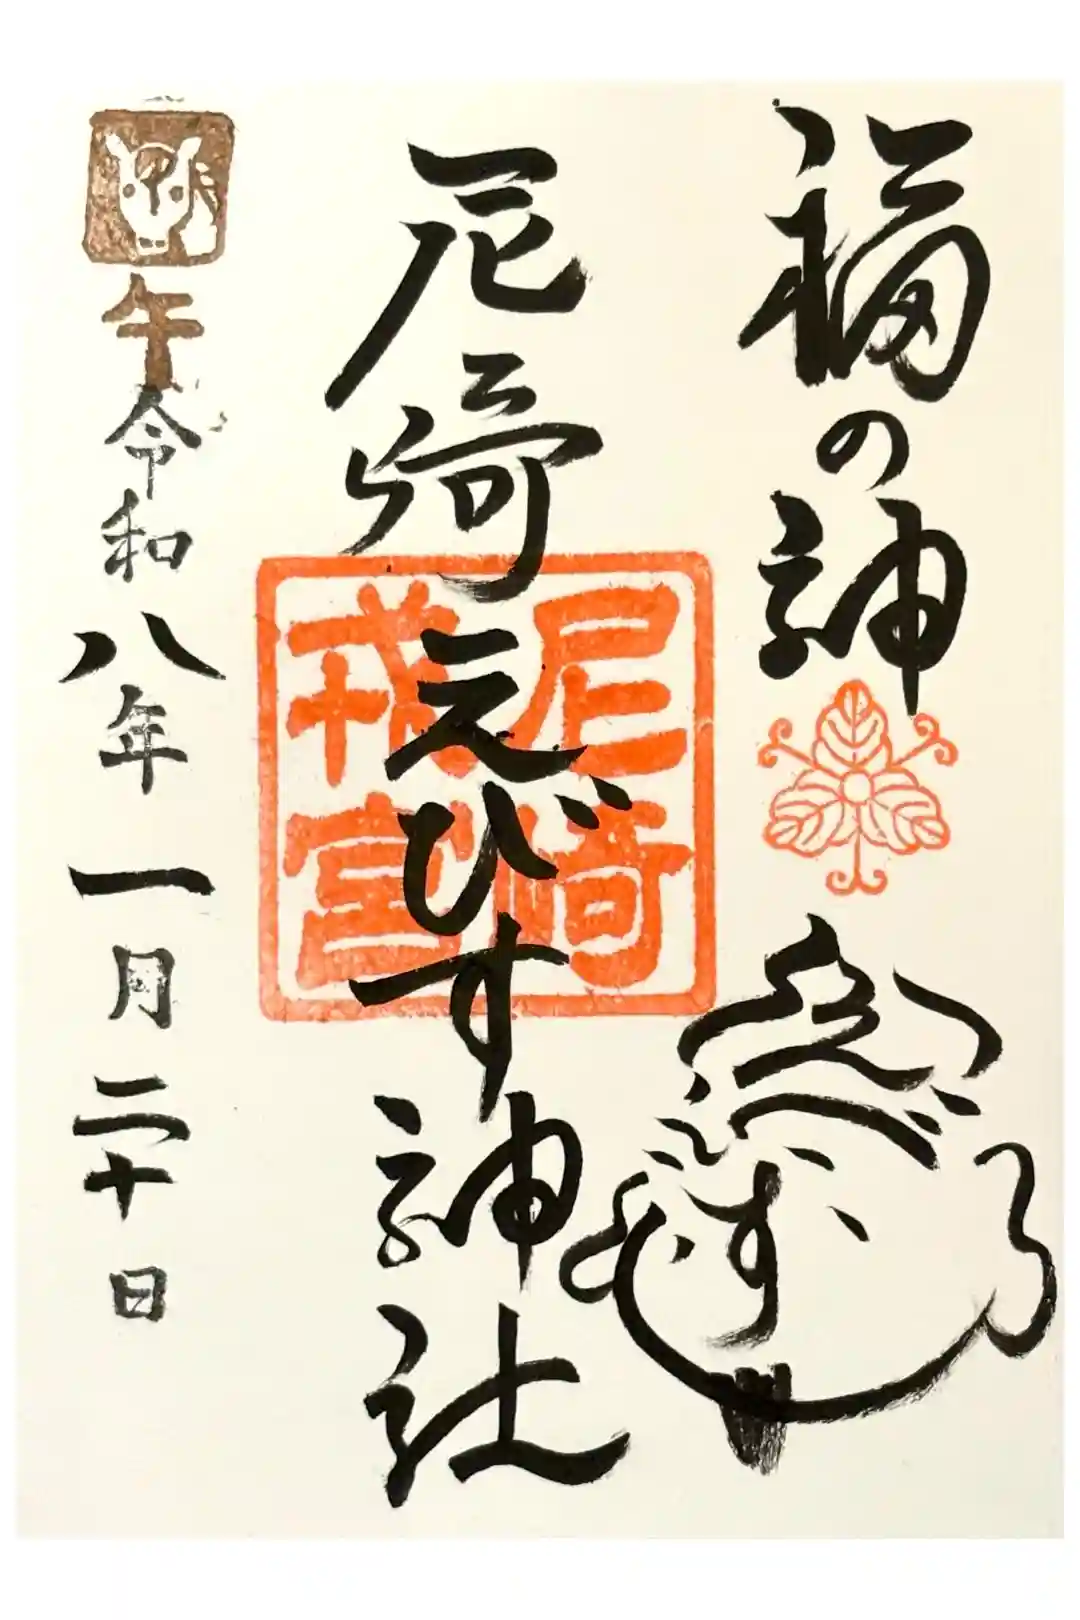 福の神
えびす
尼崎えびす神社
尼崎
戎宮
午
令和八年一月二十日